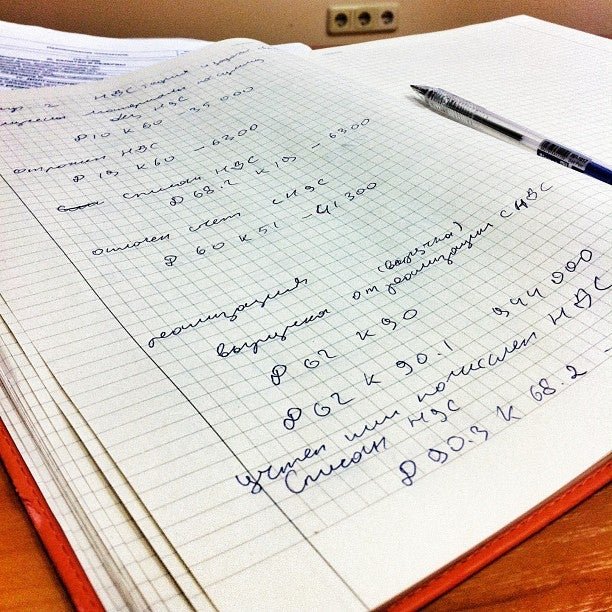 без НДС
Д 10 К 60 – 35 000
отражен НДС
Д 19 К 60 – 6300
Списан НДС
Д 68.2 К 19 – 6300
оплачен счет с НДС
Д 60 К 51 – 41 300
реализация (выручка)
выручка от реализации с НДС
Д 62 К 90
Д 62 К 90.1 944 000
учтен или начислен НДС
Списан НДС
Д 90.3 К 68.2 –